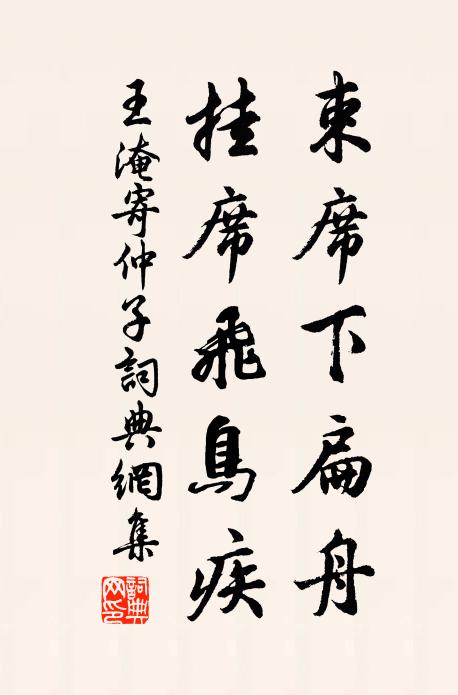 束席下扁舟
挂席飛鳥疾
王淹寄仲子詞典網集
詞典網印